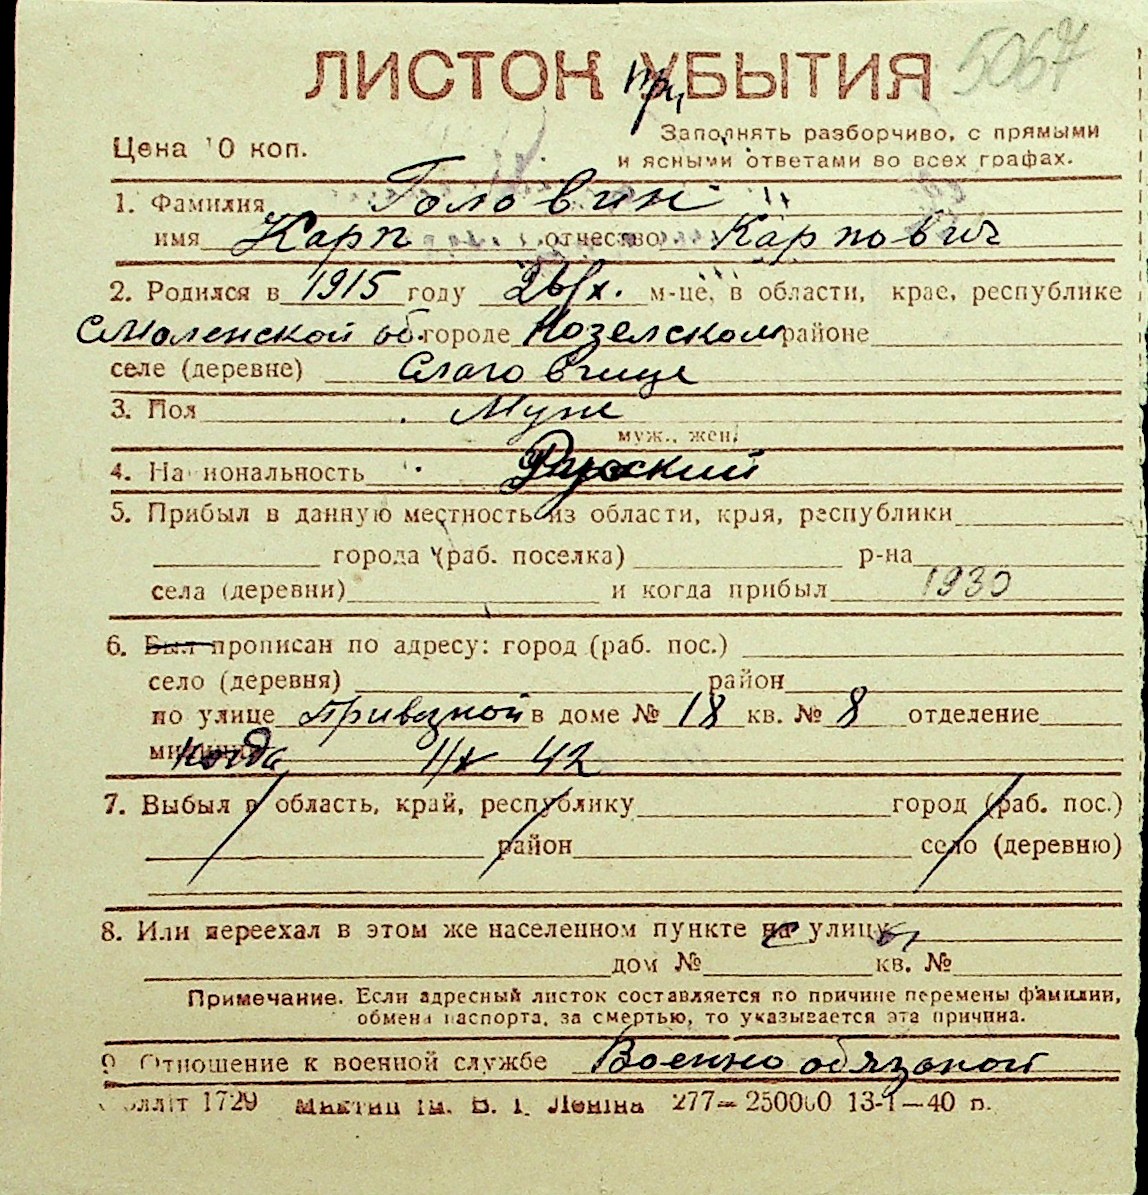 5067
ЛИСТОК При УБЫТИЯ
Цена 10 коп.
Заполнять разборчиво, с прямыми
и ясными ответами во всех графах.
1. Фамилия Головин
имя Карп отчество Карпович
2. Родился в 1915 году 26/X. м-це, в области, крае, республике
Смоленской об. городе Козелском районе
селе (деревне)
3. Пол Муж
муж., жен.
4. Национальность Русский
5. Прибыл в данную местность из области, края, республики
города (раб. поселка) р-на
села (деревни) и когда прибыл 1930
6. Был прописан по адресу: город (раб. пос.)
село (деревня) район
по улице Привозной в доме № 18 кв. № 8 отделение
милиции Когда 1/X 42
7. Выбыл в область, край, республику город (раб. пос.)
район село (деревню)
8. Или переехал в этом же населенном пункте на с улицу ы
дом № кв. №
Примечание. Если адресный листок составляется по причине перемены фамилии,
обмена паспорта, за смертью, то указывается эта причина.
9. Отношение к военной службе Военно обязаной
1729 Леніна 277—250000 13-1—40 р.